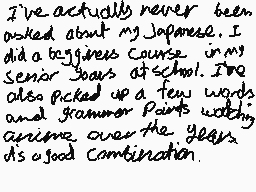 I've actually never been
asked about my Japanese. I
did a begginers course in my
senior years at school. I've
also picked up a few words
and grammar points watching
anime over the years,
it's a good combination.